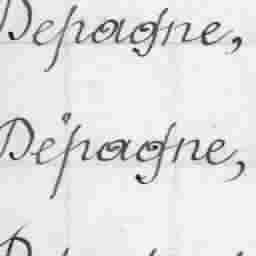 Depagne,
Depagne,